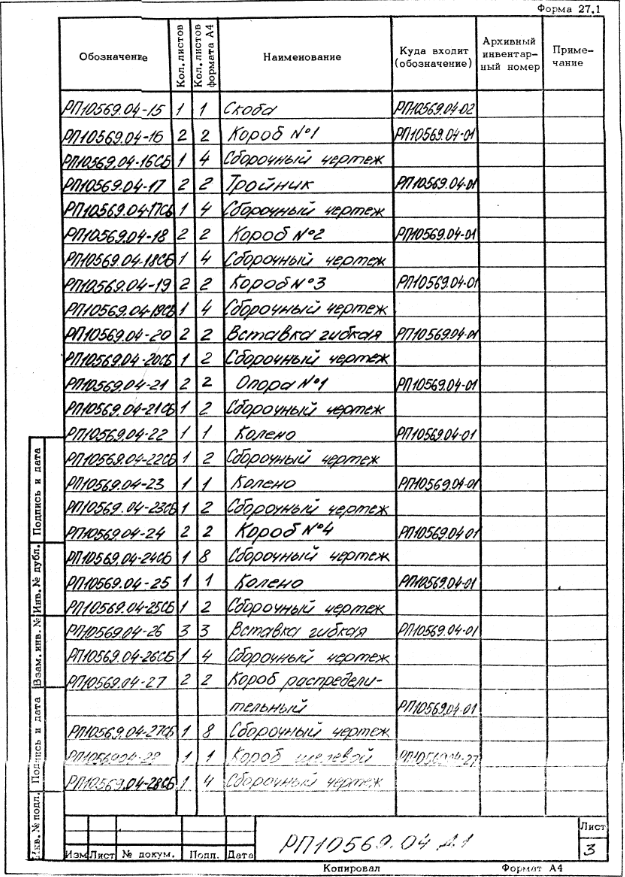 Форма 27.1
Обозначение Кол. листов Кол. листов формата А4 Наименование Куда входит (обозначение) Архивный инвентар-ный номер Приме-чание
РП10569.04-15 1 1 Скоба РП10569.04-02
РП10569.04-16 2 2 Короб №1 РП10569.04-01
РП10569.04-16СБ 1 4 Сборочный чертеж
РП10569.04-17 2 2 Тройник РП10569.04-01
РП10569.04-17СБ 1 4 Сборочный чертеж
РП10569.04-18 2 2 Короб №2 РП10569.04-01
РП10569.04-18СБ 1 4 Сборочный чертеж
РП10569.04-19 2 2 Короб №3 РП10569.04-01
РП10569.04-19СБ 1 4 Сборочный чертеж
РП10569.04-20 2 2 Вставка гибкая РП10569.04-01
РП10569.04-20СБ 1 2 Сборочный чертеж
РП10569.04-21 2 2 Опора №1 РП10569.04-01
РП10569.04-21СБ 1 2 Сборочный чертеж
РП10569.04-22 1 1 Колено РП10569.04-01
РП10569.04-22СБ 1 2 Сборочный чертеж
РП10569.04-23 1 1 Колено РП10569.04-01
РП10569.04-23СБ 1 2 Сборочный чертеж
РП10569.04-24 2 2 Короб №4 РП10569.04-01
РП10569.04-24СБ 1 8 Сборочный чертеж
РП10569.04-25 1 1 Колено РП10569.04-01
РП10569.04-25СБ 1 2 Сборочный чертеж
РП10569.04-26 3 3 Вставка гибкая РП10569.04-01
РП10569.04-26СБ 1 4 Сборочный чертеж
РП10569.04-27 2 2 Короб распредели-
тельный РП10569.04-01
РП10569.04-27СБ 1 8 Сборочный чертеж
РП10569.04-28 1 1 Короб щелевой РП10569.04-27
РП10569.04-28СБ 1 4 Сборочный чертеж
Инв. № подл. Подпись и дата Взам. инв. № Инв. № дубл. Подпись и дата
Изм Лист № докум. Подп. Дата
РП10569.04 Д1
Лист
3
Копировал Формат А4